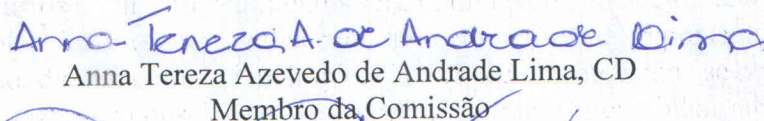 Anna Tereza A. de Andrade Lima
Anna Tereza Azevedo de Andrade Lima, CD
Membro da Comissão